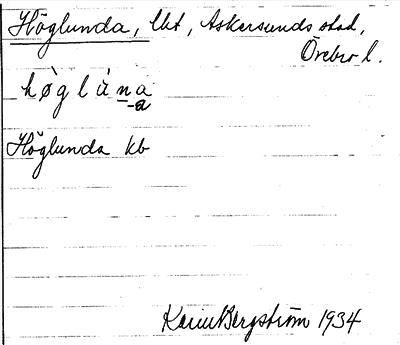 Höglunda, lht, Askersunds stad,
Örebro l.
hø̀glùna
-a
Höglunda kb
Karin Bergström 1934